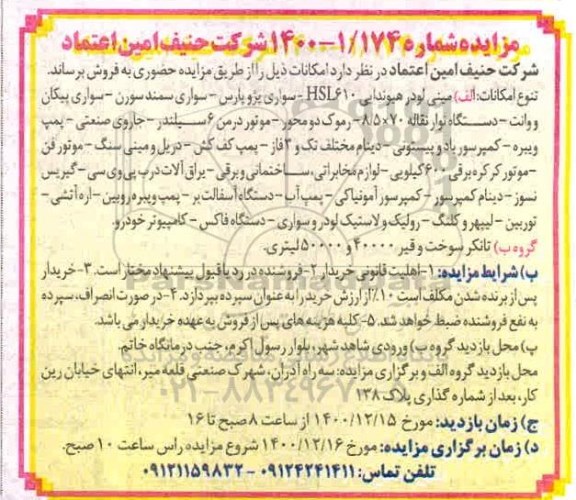 مزایده شماره ۱/۱۷۴-۱۴۰۰ شرکت حنیف امین اعتماد
شرکت حنیف امین اعتماد در نظر دارد امکانات ذیل را از طریق مزایده حضوری به فروش برساند.
تنوع امکانات: الف) مینی لودر هیوندایی HSL۶۱۰ - سواری پژو پارس - سواری سمند سورن - سواری پیکان
و وانت - دستگاه نوار نقاله ۷۰×۸۵ - رموک دو محور - موتور درمن ۶ سیلندر - جاروی صنعتی - پمپ
ویبره - کمپرسور باد و پیستونی - دینام مختلف تک و ۳ فاز - پمپ کف کش - دریل و مینی سنگ - موتور فن
- موتور کرکره برقی ۶۰۰ کیلویی - لوازم مخابراتی، ساختمانی و برقی - یراق آلات درب پی وی سی - گیریس
نسوز - دینام کمپرسور - کمپرسور آمونیاکی - پمپ آب - دستگاه آسفالت بر - پمپ ویبره روبین - اره آتشی -
توربین - لیپهر و کلنگ - رولیک و لاستیک لودر و سواری - دستگاه فاکس - کامپیوتر خودرو.
گروه ب) تانکر سوخت و قیر ۴۰۰۰۰ و ۵۰۰۰۰ لیتری.
ب) شرایط مزایده: ۱- اهلیت قانونی خریدار ۲- فروشنده در رد یا قبول پیشنهاد مختار است. ۳- خریدار
پس از برنده شدن مکلف است ۱۰٪ از ارزش خرید را به عنوان سپرده بپردازد. ۴- در صورت انصراف، سپرده
به نفع فروشنده ضبط خواهد شد. ۵- کلیه هزینه های پس از فروش به عهده خریدار می باشد.
پ) محل بازدید گروه ب) ورودی شاهد شهر، بلوار رسول اکرم، جنب درمانگاه خاتم.
محل بازدید گروه الف و برگزاری مزایده: سه راه آدران، شهرک صنعتی قلعه میر، انتهای خیابان رین
کار، بعد از شماره گذاری پلاک ۱۳۸
ج) زمان بازدید: مورخ ۱۴۰۰/۱۲/۱۵ از ساعت ۸ صبح تا ۱۶
د) زمان برگزاری مزایده: مورخ ۱۴۰۰/۱۲/۱۶ شروع مزایده راس ساعت ۱۰ صبح.
تلفن تماس: ۰۹۱۲۴۲۴۱۴۱۱ - ۰۹۱۲۱۱۵۹۸۳۲
ParsNamadData
۰۲۱-۸۸۳۴۹۶۷۰